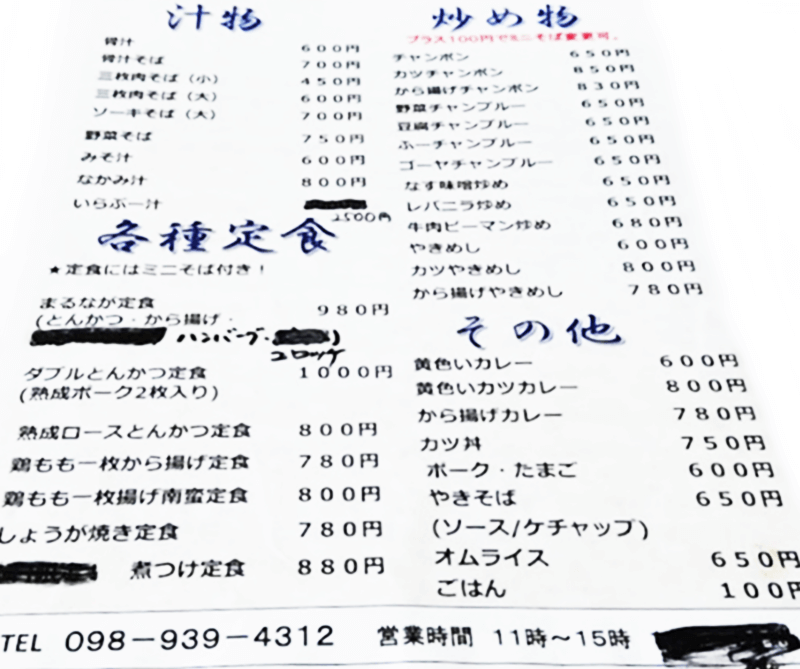 汁物
骨汁 600円
骨汁そば 700円
三枚肉そば（小） 450円
三枚肉そば（大） 600円
ソーキそば（大） 700円
野菜そば 750円
みそ汁 600円
なかみ汁 800円
いらぶー汁
2500円
各種定食
★定食にはミニそば付き！
まるなが定食 980円
(とんかつ・から揚げ・
ハンバーグ・
コロッケ
ダブルとんかつ定食 1000円
(熟成ポーク2枚入り)
熟成ロースとんかつ定食 800円
鶏もも一枚から揚げ定食 780円
鶏もも一枚揚げ南蛮定食 800円
しょうが焼き定食 780円
煮つけ定食 880円
炒め物
プラス100円でミニそば変更可。
チャンポン 650円
カツチャンポン 850円
から揚げチャンポン 830円
野菜チャンプルー 650円
豆腐チャンプルー 650円
ふーチャンプルー 650円
ゴーヤチャンプルー 650円
なす味噌炒め 650円
レバニラ炒め 650円
牛肉ピーマン炒め 680円
やきめし 600円
カツやきめし 800円
から揚げやきめし 780円
その他
黄色いカレー 600円
黄色いカツカレー 800円
から揚げカレー 780円
カツ丼 750円
ポーク・たまご 600円
やきそば 650円
(ソース/ケチャップ)
オムライス 650円
ごはん 100円
TEL 098－939－4312 営業時間 11時～15時